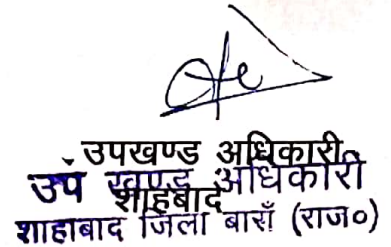 उपखण्ड अधिकारी
शाहबाद
उप खण्ड अधिकारी
शाहाबाद जिला बाराँ (राज०)